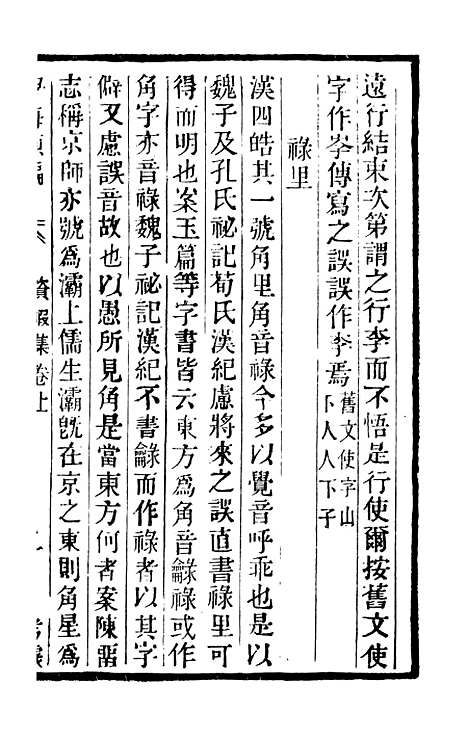 遠行結束次第謂之行李而不悟是行使爾按舊文使
字作岑傳寫之誤誤作李焉舊文使字山下人人下子
祿里
漢四皓其一號角里角音祿今多以覺音呼乖也是以
魏子及孔氏祕記荀氏漢紀慮將來之誤直書祿里可
得而明也案玉篇等字書皆云東方為角音龣祿或作
角字亦音祿魏子祕記漢紀不書龣而作祿者以其字
僻又慮誤音故也以愚所見角是當東方何者案陳畱
志稱京師亦號為灞上儒生灞旣在京之東則角星為
資暇集卷上